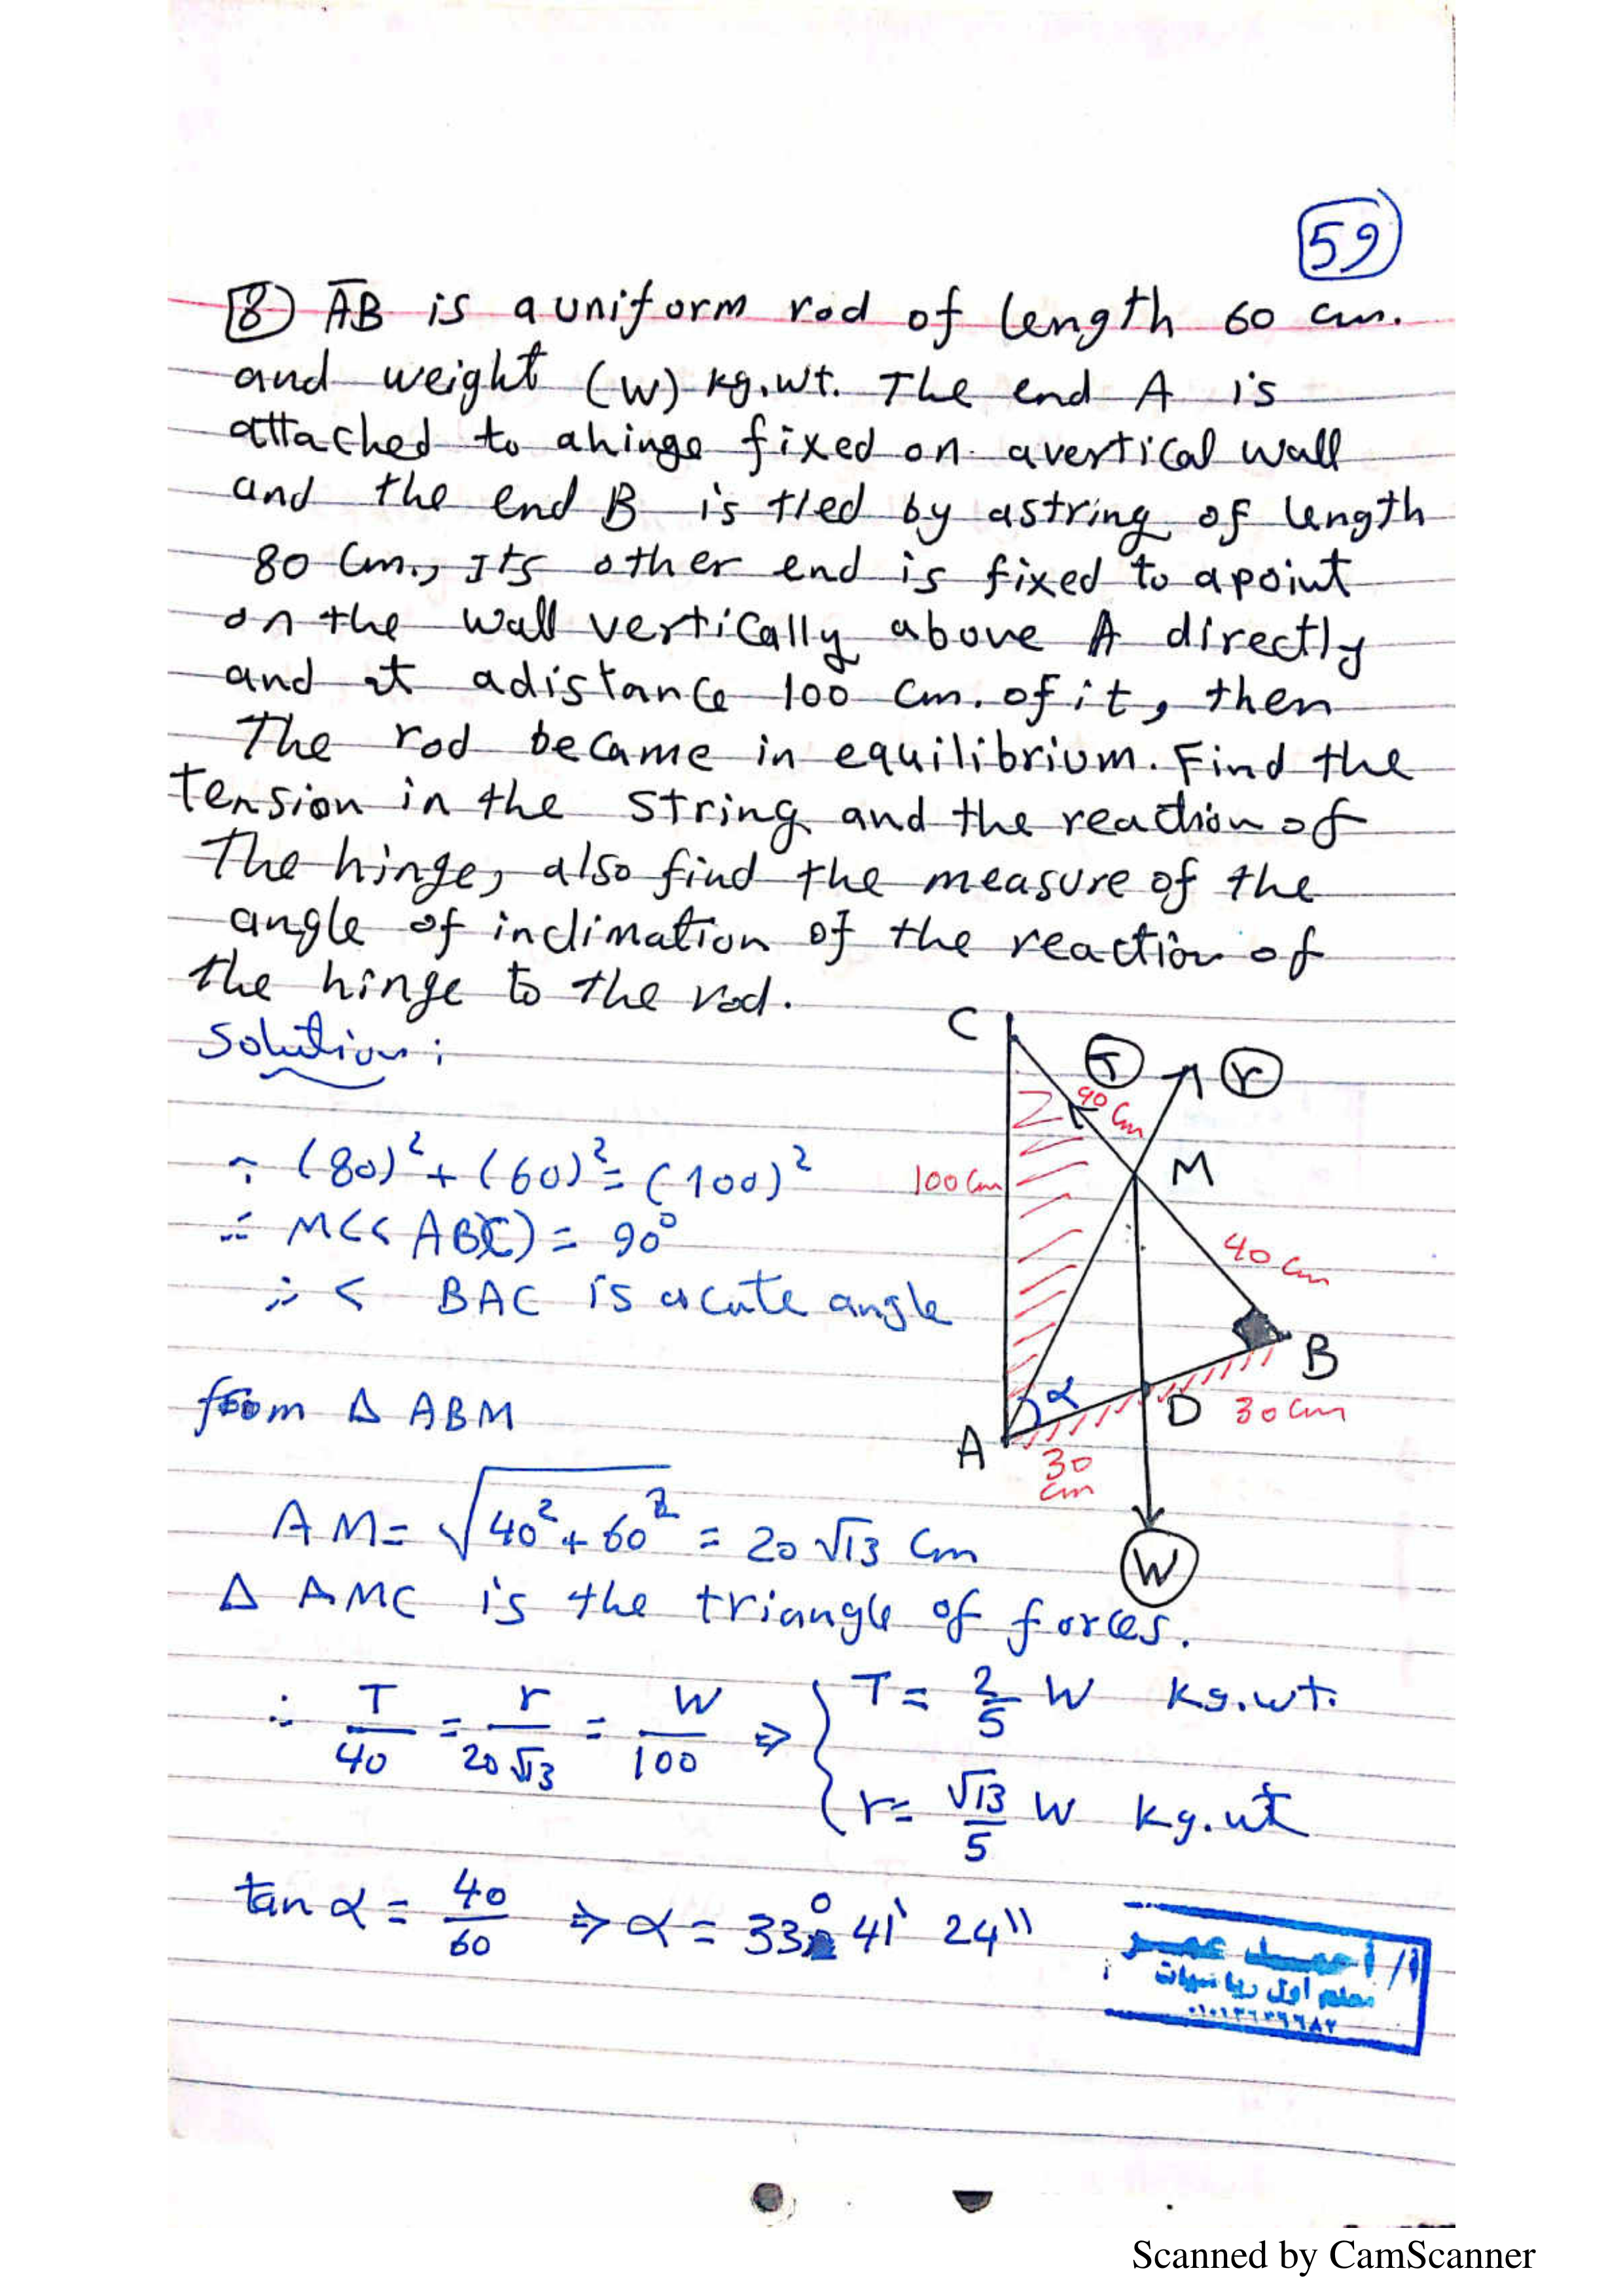 59
8 AB is a uniform rod of length 60 cm.
and weight (W) kg.wt. The end A is
attached to a hinge fixed on a vertical wall
and the end B is tied by a string of length
80 Cm., Its other end is fixed to a point
on the wall vertically above A directly
and at a distance 100 Cm. of it, then
The rod became in equilibrium. Find the
Tension in the string and the reaction of
The hinge, also find the measure of the
angle of inclination of the reaction of
the hinge to the rod.
Solution:
C
T
r
90 Cm
M
100 Cm
40 Cm
B
α
D
30 Cm
A
30
Cm
W
∵ (80)² + (60)² = (100)²
∴ M(< ABC) = 90°
∴ < BAC is acute angle
from Δ ABM
AM = √40² + 60² = 20 √13 Cm
Δ AMC is the triangle of forces.
∴ T/40 = r/20√13 = W/100 ⇒ { T = 2/5 W kg.wt.
r = √13/5 W kg.wt
tan α = 40/60 ⇒ α = 33° 41' 24"
أ/ أحمد عمر
معلم أول رياضيات
Scanned by CamScanner